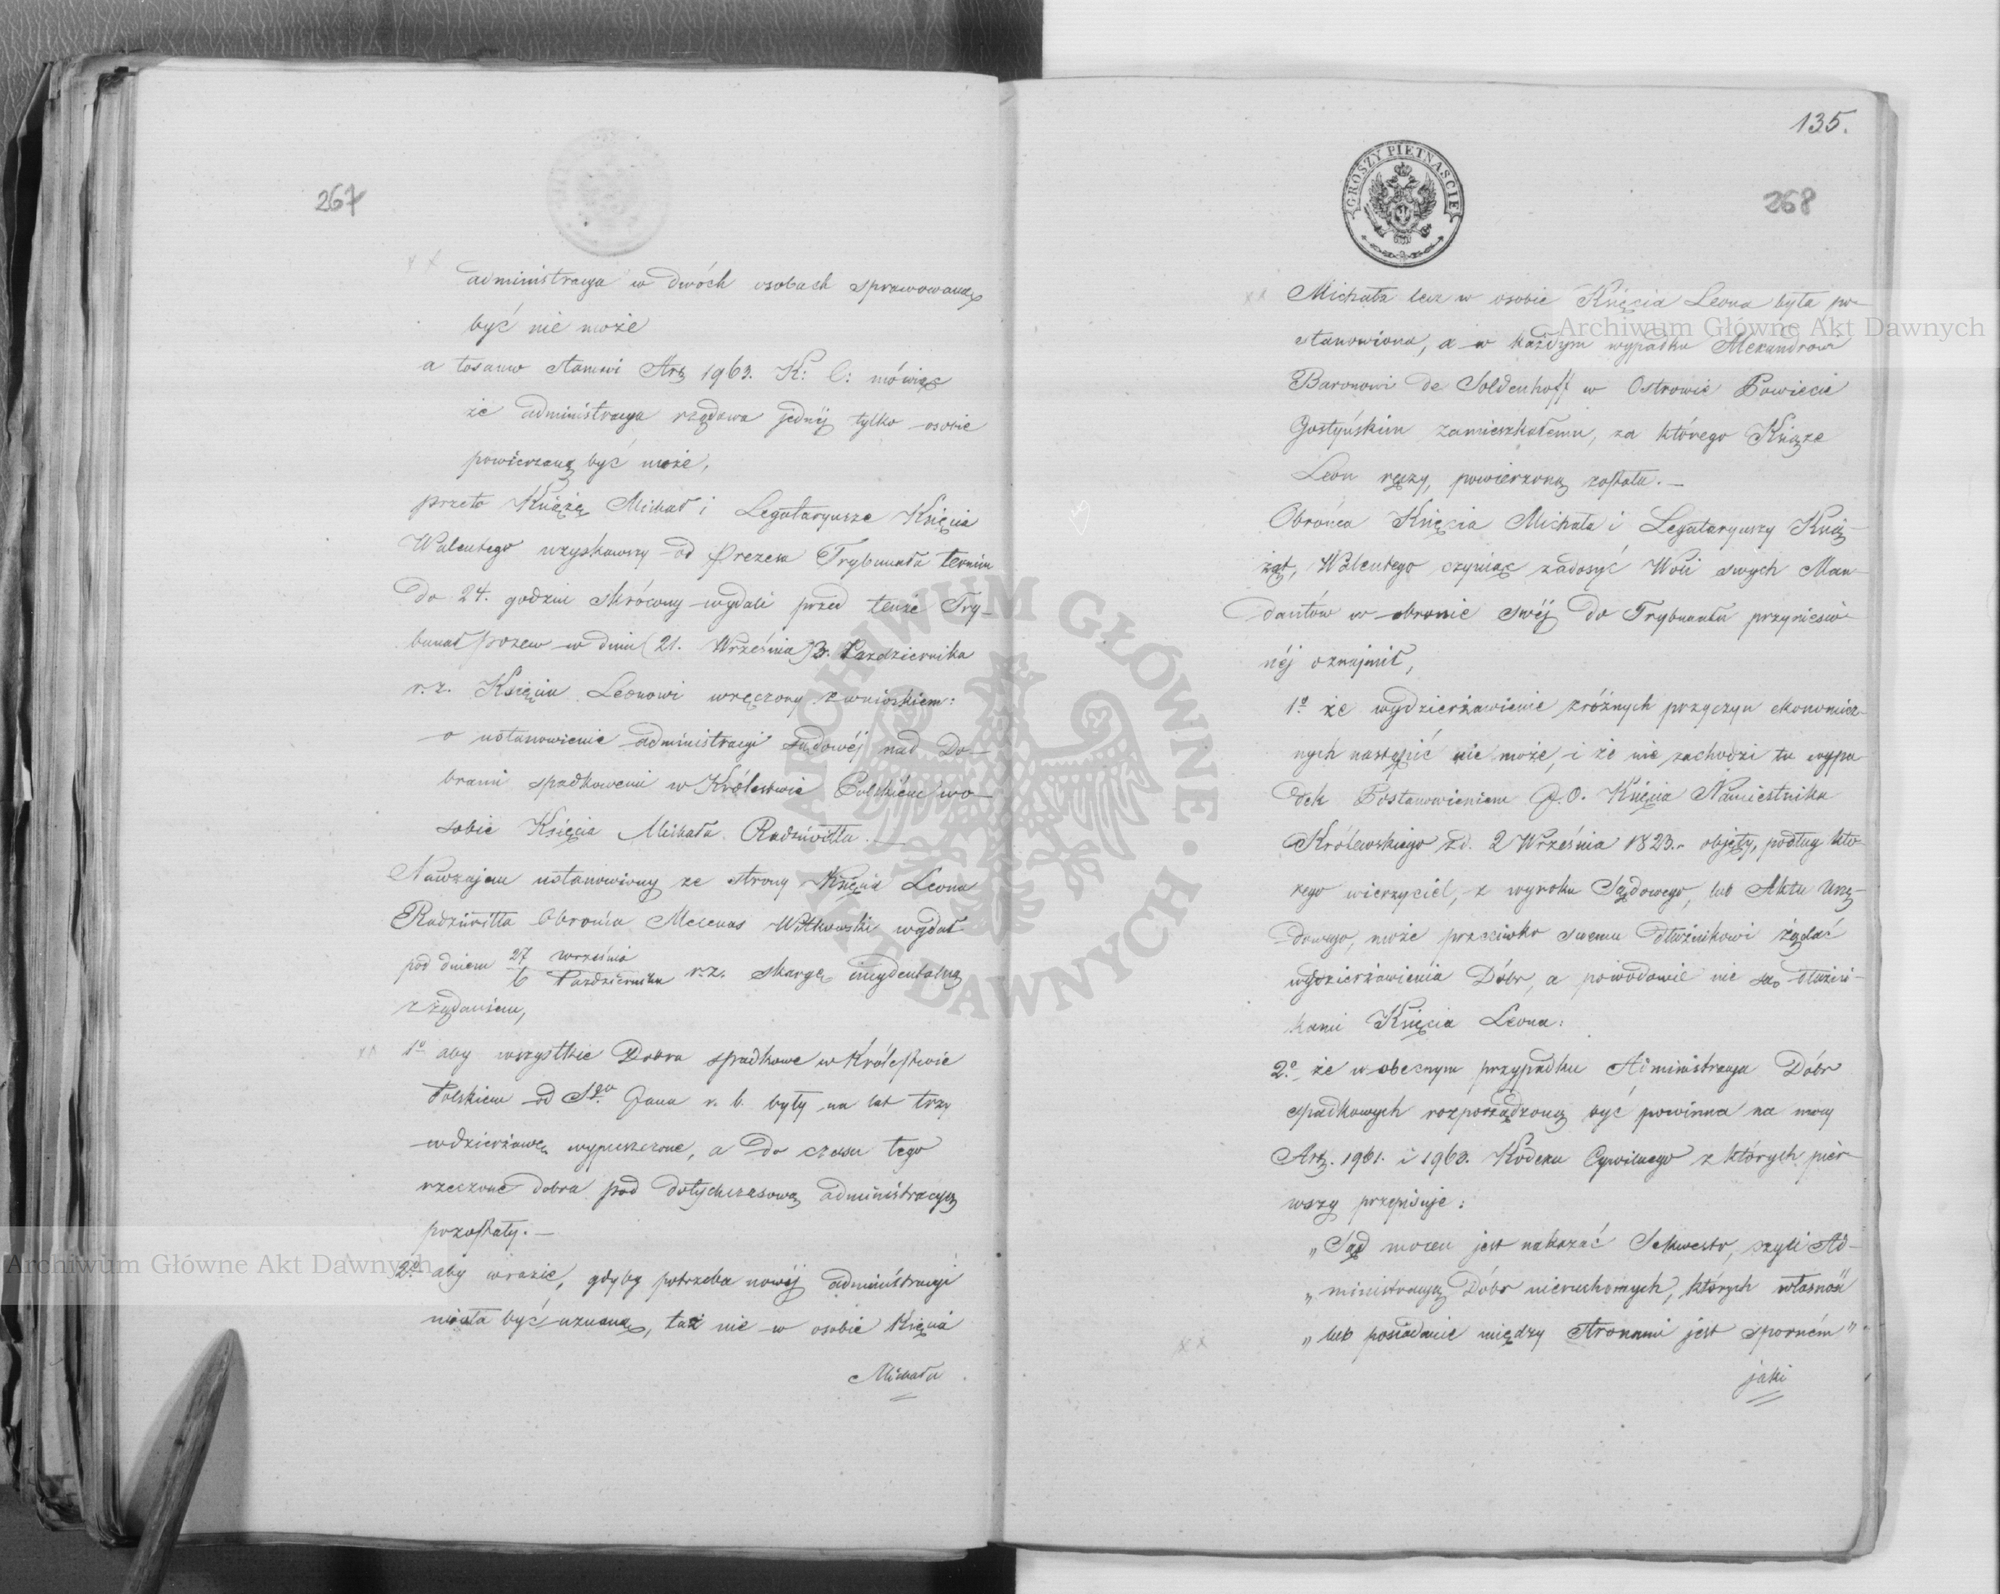 267
administracya w dwóch osobach sprawowaną
być nie może
a tosamo stanowi Art. 1963. K: C: mówiąc
że administracya rządowa jednéj tylko osobie
powierzaną być może,
przeto Książę Michał i Legataryusze Księcia
Walentego uzyskawszy od Prezesa Trybunału termin
do 24. godzin skrócony wydali przed tenże Try-
bunał pozew w dniu 21. Września/3. Października
r.z. Księciu Leonowi wręczony z wnioskiem:
o ustanowienie administracyi sądowéj nad Do-
brami spadkowemi w Królestwie Polskiém w o-
sobie Księcia Michała Radziwiłła. —
Nawzajem ustanowiony ze strony Księcia Leona
Radziwiłła Obrońca Mecenas Witkowski wydał
pod dniem 27 września / 6 Października r.z. skargę incydentalną
z żądaniem,
1o aby wszystkie Dobra spadkowe w Królestwie
Polskiem od Sgo Jana r. b. były na lat trzy
w dzierżawę wypuszczone, a do czasu tego
rzeczone dobra pod dotychczasową administracyą
pozostały. —
2o aby w razie, gdyby potrzeba nowéj administracyi
miała być uznaną, taż nie w osobie Księcia
Michała
135.
GROSZY PIĘTNAŚCIE
268
Michała lecz w osobie Księcia Leona była po-
stanowiona, a w każdym wypadku Alexandrowi
Baronowi de Soldenhoff w Ostrowie Powiecie
Gostyńskim zamieszkałemu, za którego Książe
Leon ręczy, powierzoną została. —
Obrońca Księcia Michała i Legataryuszy Ksią-
żąt, Walentego czyniąc zadosyć Woli swych Man-
dantów w obronie swéj do Trybunału przyniesio-
néj oznajmił,
1o że wydzierżawienie z różnych przyczyn ekonomicz-
nych nastąpić nie może, i że nie zachodzi tu wypa-
dek Postanowieniem J.O. Księcia Namiestnika
Królewskiego z d. 2 Września 1823. objęty, podług któ-
rego wierzyciel, z wyroku Sądowego, lub Aktu Urzę-
dowego, może przeciwko swemu dłużnikowi żądać
wydzierżawienia Dóbr, a powodowie nie są dłużni-
kami Księcia Leona:
2o że w obecnym przypadku Administracya Dóbr
spadkowych rozporządzoną być powinna na mocy
Art. 1961. i 1963. Kodexu Cywilnego z których pier-
wszy przepisuje:
„Sąd mocen jest nakazać Sekwestr, czyli Ad-
„ministracyą Dóbr nieruchomych, których własność
„lub posiadanie między stronami jest sporném"
jaki
Archiwum Główne Akt Dawnych
Archiwum Główne Akt Dawnych
ARCHIWUM GŁÓWNE · AKT DAWNYCH ·